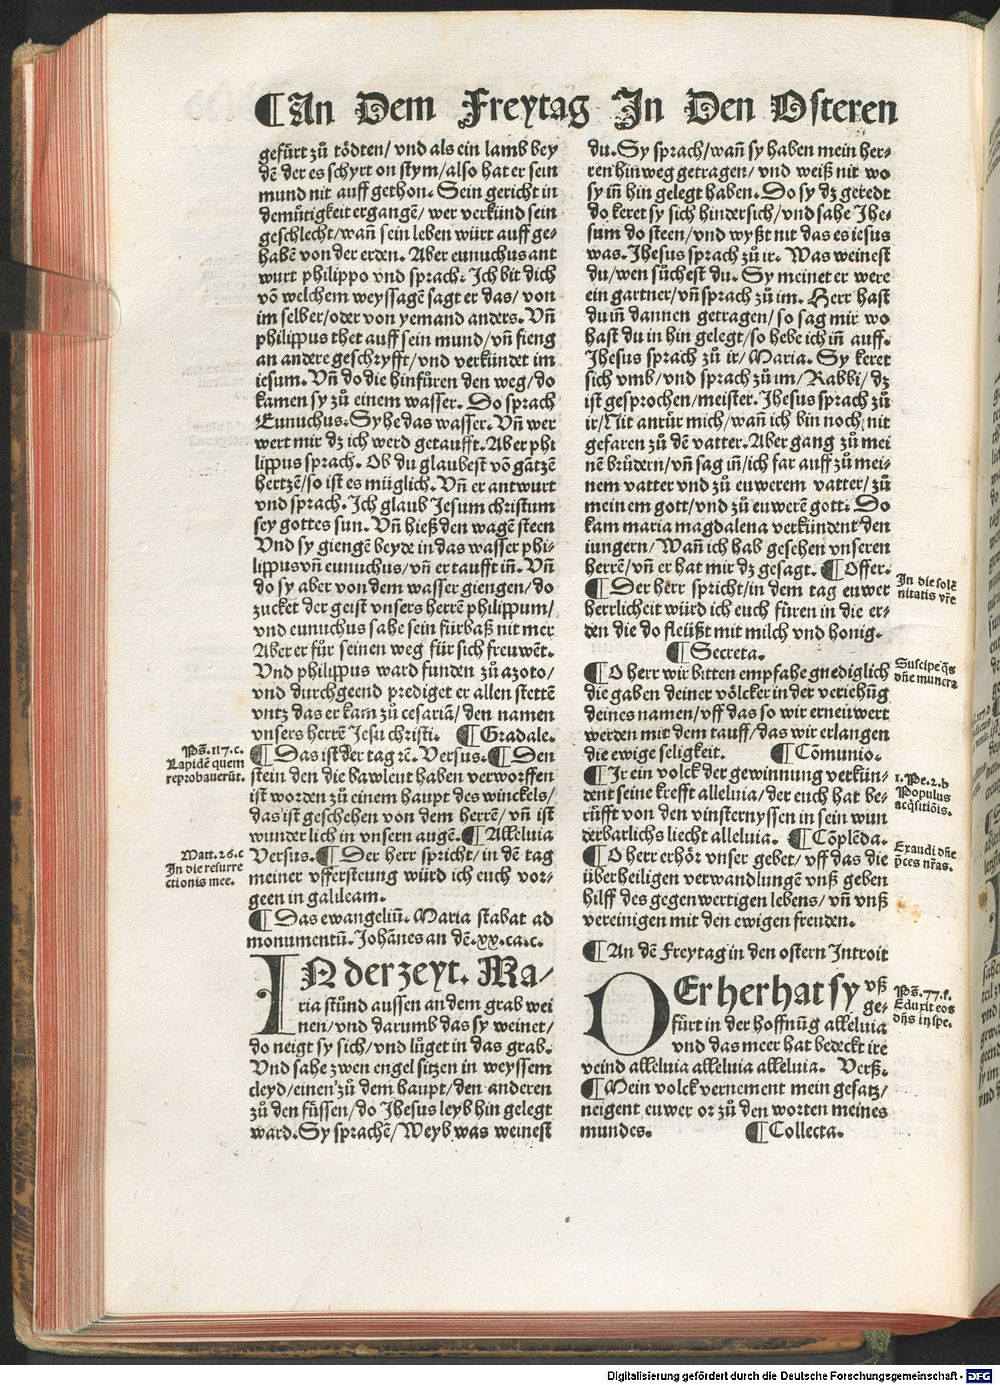 ¶An Dem Freytag In Den Osteren
gefürt zů tödten/ vnd als ein lamb bey
dē der es schyrt on stym/also hat er sein
mund nit auff gethon. Sein gericht in
demütigkeit ergangē/ wer verkünd sein
geschlecht/wañ sein leben würt auff ge-
habē von der erden. Aber eunuchus ant
wurt philippo vnd sprach. Ich bit dich
vō welchem weyssagē sagt er das/ von
im selber/oder von yemand anders. Vñ
philippus thet auff sein mund/vñ fieng
an andere geschryfft/vnd verkündet im
iesum. Vñ do die hinfüren den weg/do
kamen sy zů einem wasser. Do sprach
Eunuchus. Syhe das wasser. Vñ wer
wert mir dz ich werd getaufft. Aber phi
lippus sprach. Ob du glaubest vō gātzē
hertzē/so ist es müglich. Vñ er antwurt
vnd sprach. Ich glaub Jesum christum
sey gottes sun. Vñ hieß den wagē steen
Vnd sy giengē beyde in das wasser phi-
lippus vñ eunuchus/vñ er taufft iñ. Vñ
do sy aber von dem wasser giengen/do
zucket der geist vnsers herrē philippum/
vnd eunuchus sahe sein fürbaß nit mer
Aber er fůr seinen weg für sich freuwēt.
Vnd philippus ward funden zů azoto/
vnd durchgeend prediget er allen stettē
vntz das er kam zů cesariā/ den namen
vnsers herrē Jesu christi. ¶Gradale.
¶Das ist der tag ꝛc. Versus. ¶Den
stein den die bawleut haben verworffen
ist worden zů einem haupt des winckels/
das ist geschehen von dem herrē/ vñ ist
wunderlich in vnsern augē. ¶Alleluia
Versus. ¶Der herr spricht/in dē tag
meiner vffersteung würd ich euch vor-
geen in galileam.
¶Das ewangeliū. Maria stabat ad
monumentū. Johānes an dē. xx. ca. c.
IN der zeyt. Ma/
ria stůnd aussen an dem grab wei
nen/vnd darumb das sy weinet/
do neigt sy sich/vnd lůget in das grab.
Vnd sahe zwen engel sitzen in weyssem
cleyd/einen zů dem haupt/den anderen
zů den füssen/do Jhesus leyb hin gelegt
ward. Sy sprachē/Weyb was weinest
Ps. 117. c.
Lapidē quem
reprobauerūt.
Matt. 26. c
In die resurre
ctionis mee.
du. Sy sprach/wañ sy haben mein her-
ren hinweg getragen/ vnd weiß nit wo
sy iñ hin gelegt haben. Do sy dz geredt
do keret sy sich hindersich/vnd sahe Jhe-
sum do steen/vnd wyßt nit das es iesus
was. Jhesus sprach zů ir. Was weinest
du/wen sůchest du. Sy meinet er were
ein gartner/vñ sprach zů im. Herr hast
du iñ dannen getragen/so sag mir wo
hast du in hin gelegt/so hebe ich iñ auff.
Jhesus sprach zů ir/Maria. Sy keret
sich vmb/vnd sprach zů im/Rabbi/dz
ist gesprochen/meister. Jhesus sprach zů
ir/Nit anrür mich/wañ ich bin noch nit
gefaren zů dē vatter. Aber gang zů mei
nē brůdern/vñ sag iñ/ich far auff zů mei-
nem vatter vnd zů euwerem vatter/ zů
meinem gott/vnd zů euwerē gott. Do
kam maria magdalena verkündent den
iungern/Wañ ich hab gesehen vnseren
herrē/vñ er hat mir dz gesagt. ¶Offer.
¶Der herr spricht/in dem tag euwer
herrlicheit würd ich euch füren in die er-
den die do fleüßt mit milch vnd honig.
¶Secreta.
¶O herr wir bitten empfahe gnediglich
die gaben deiner völcker in der veriehūg
deines namen/ vff das so wir erneuwert
werden mit dem tauff/das wir erlangen
die ewige seligkeit. ¶Cōmunio.
¶Ir ein volck der gewinnung verkün-
dent seine krefft alleluia/der euch hat be-
rüfft von den vinsternyssen in sein wun
derbarlichs liecht alleluia. ¶Cōplēda.
¶O herr erhör vnser gebet/ vff das die
überheiligen verwandlungē vnß geben
hilff des gegenwertigen lebens/ vñ vnß
vereinigen mit den ewigen freuden.
¶An dē Freytag in den ostern Introit
OEr her hat sy vß
ge-
fürt in der hoffnūg alleluia
vnd das meer hat bedeckt ire
veind alleluia alleluia alleluia. Verß.
¶Mein volck vernement mein gesatz/
neigent euwer or zů den worten meines
mundes. ¶Collecta.
In die solē
nitatis vr̄e
Suscipe q̄s
dn̄e munera
1. Pe. 2. b
Populus
acq̄sitiōis.
Exaudi dn̄e
p̄ces nr̄as.
Ps. 77. f.
Eduxit eos
dn̄s in spe.
Digitalisierung gefördert durch die Deutsche Forschungsgemeinschaft - DFG